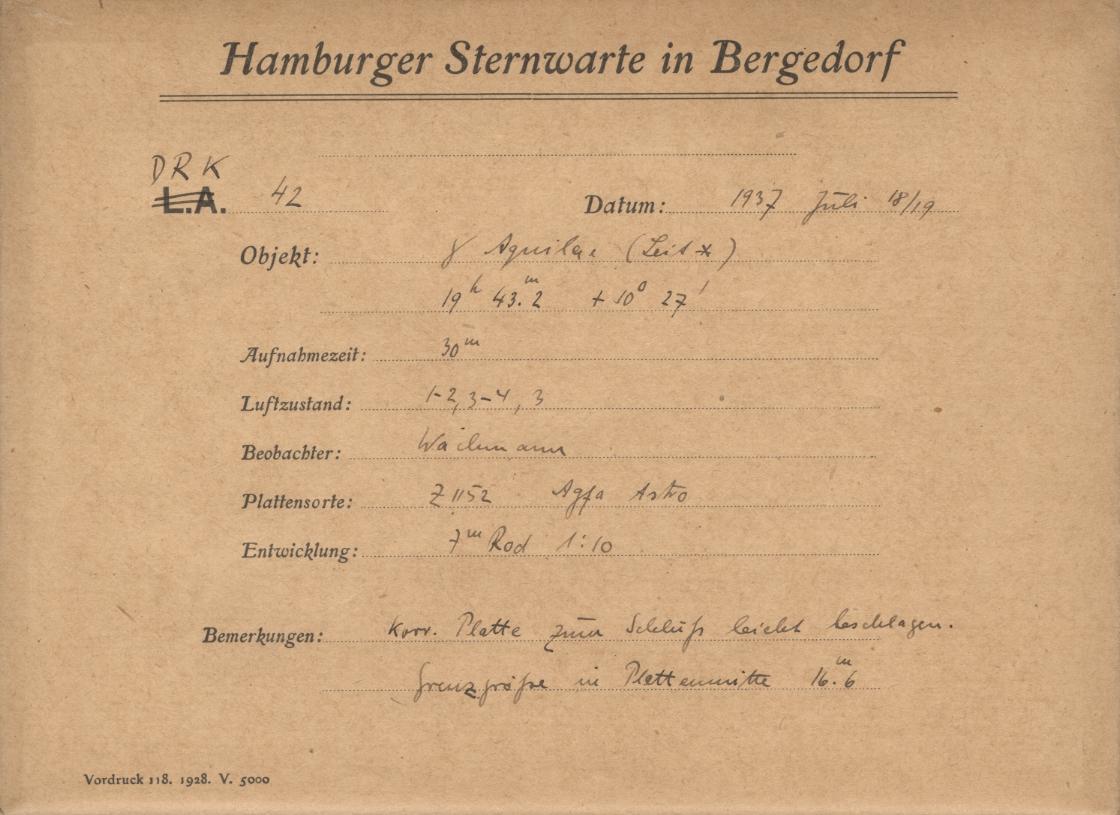 Hamburger Sternwarte in Bergedorf
DRK
L.A. 42 Datum: 1937 Juli 18/19
Objekt: γ Aquilae (Leit *)
19h 43.m2 + 10° 27'
Aufnahmezeit: 30m
Luftzustand: 1-2, 3-4, 3
Beobachter: Wachmann
Plattensorte: Z 1152 Agfa Astro
Entwicklung: 7m Rod 1:10
Bemerkungen: Korr. Platte zum Schluß leicht beschlagen.
Grenzgröße in Plattenmitte 16.m6
Vordruck 118. 1928. V. 5000